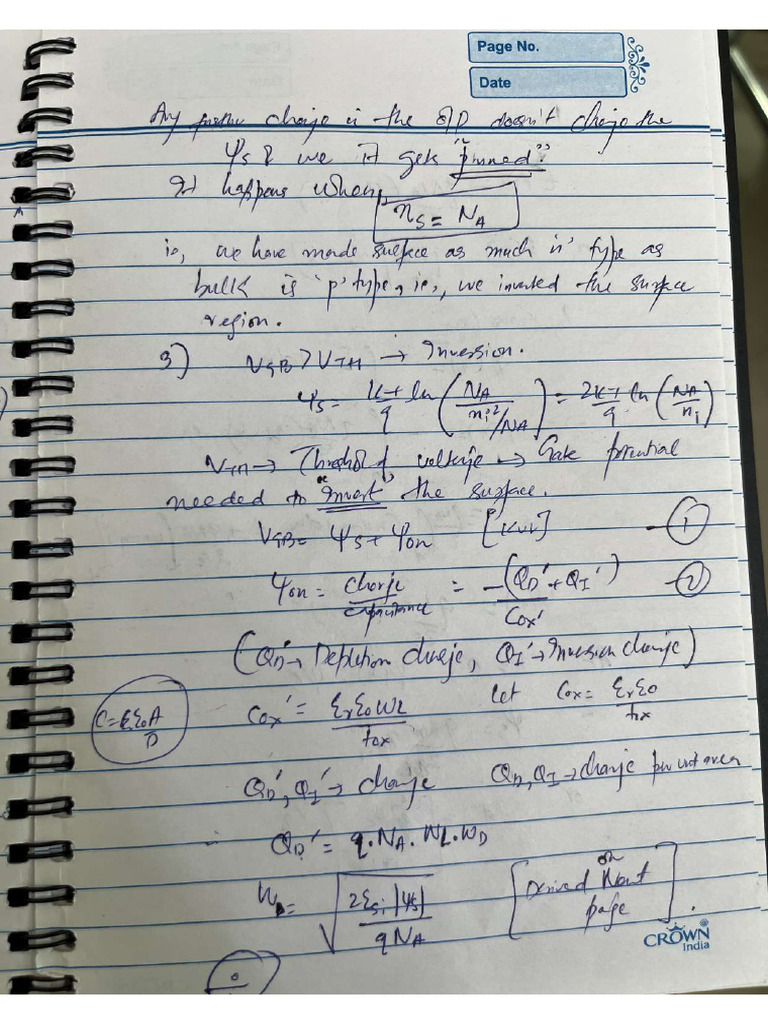 Page No.
Date
Any further change in the O/P doesn't change the
ψs & we it gets "pinned".
It happens when,
ns = NA
ie, we have made surface as much 'n' type as
bulk is 'p' type, ie, we inverted the surface
region.
3) VGB > VTH → Inversion.
ψs = kT/q ln (NA / (ni²/NA)) = 2kT/q ln (NA/ni)
VTH → Threshold voltage → Gate potential
needed to "invert" the surface.
VGB = ψs + ψox [KVL] — ①
ψox = charge/capacitance = -(QD' + QI')/Cox' — ②
(QD' → Depletion charge, QI' → Inversion charge)
C = εrε0A/D
Cox' = εrε0WL/tox let Cox = εrε0/tox
QD', QI' → charge QD, QI → charge per unit area
QD' = q.NA.WL.WD
WD = √(2εsi |ψs| / qNA) [Derived on Next page].
CROWN
India